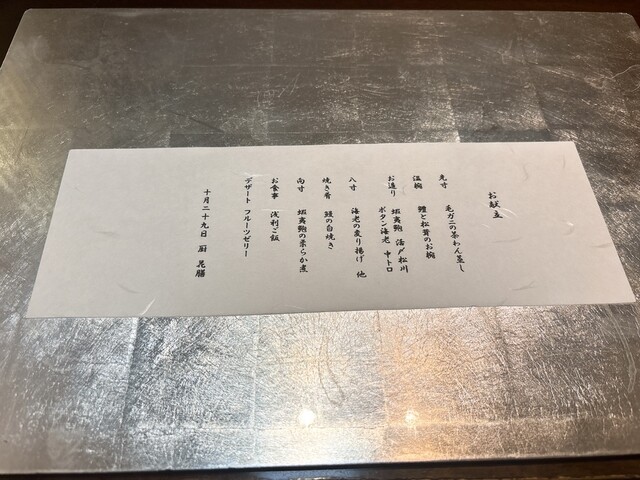 お献立
先寸 毛ガニの茶わん蒸し
温椀 鱧と松茸のお椀
お造り 蝦夷鮑 活〆松川
ボタン海老 中トロ
八寸 海老の変り揚げ 他
焼き肴 鰻の白焼き
向寸 蝦夷鮑の柔らか煮
お食事 浅利ご飯
デザート フルーツゼリー
十月二十九日 厨 花膳